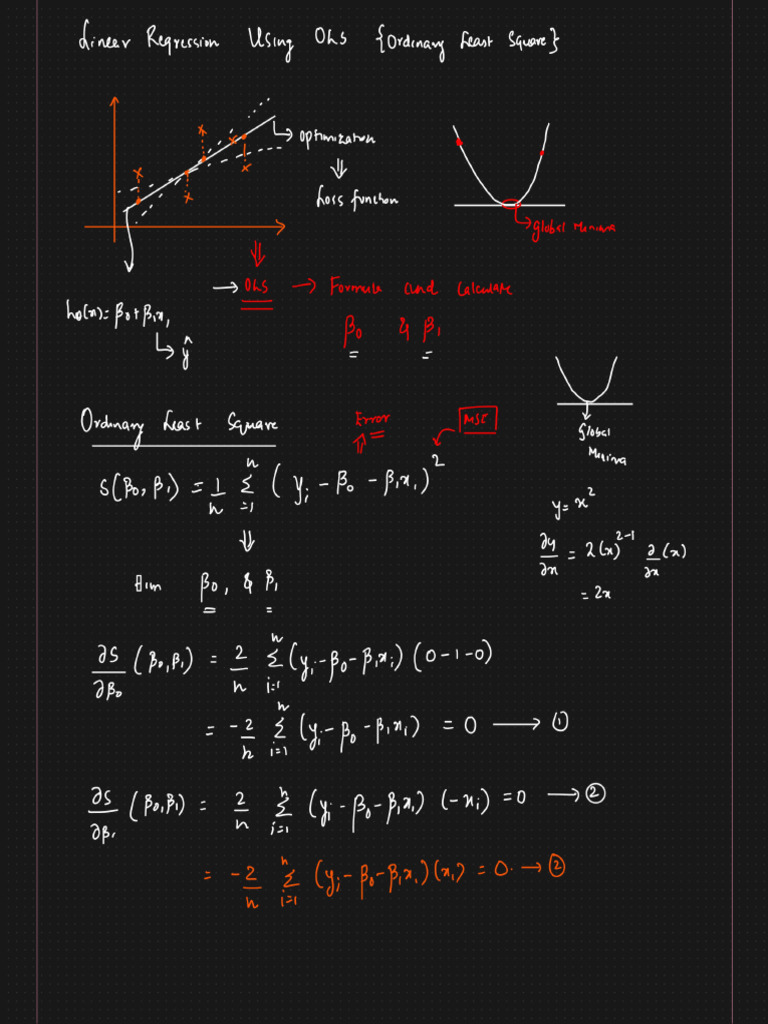 Linear Regression Using OLS {Ordinary Least Square}
optimization
⇓
Loss function
→ Global Minima
⇓
→ OLS → Formula and Calculate
β₀ & β₁
h₀(x) = β₀ + β₁x₁
→ ŷ
Ordinary Least Square
Error
MSE
Global
Minima
S(β₀, β₁) = 1/n Σⁿ₌₁ (yᵢ - β₀ - β₁x₁)²
y = x²
∂y/∂x = 2(x)²⁻¹ ∂/∂x (x)
= 2x
⇓
β₀, & β₁
∂S/∂β₀ (β₀, β₁) = 2/n Σⁿᵢ₌₁ (yᵢ - β₀ - β₁xᵢ) (0-1-0)
= -2/n Σⁿᵢ₌₁ (yᵢ - β₀ - β₁x₁) = 0 → ①
∂S/∂β₁ (β₀, β₁) = 2/n Σⁿᵢ₌₁ (yᵢ - β₀ - β₁x₁) (-xᵢ) = 0 → ②
= -2/n Σⁿᵢ₌₁ (yᵢ - β₀ - β₁x₁)(x₁) = 0. → ②